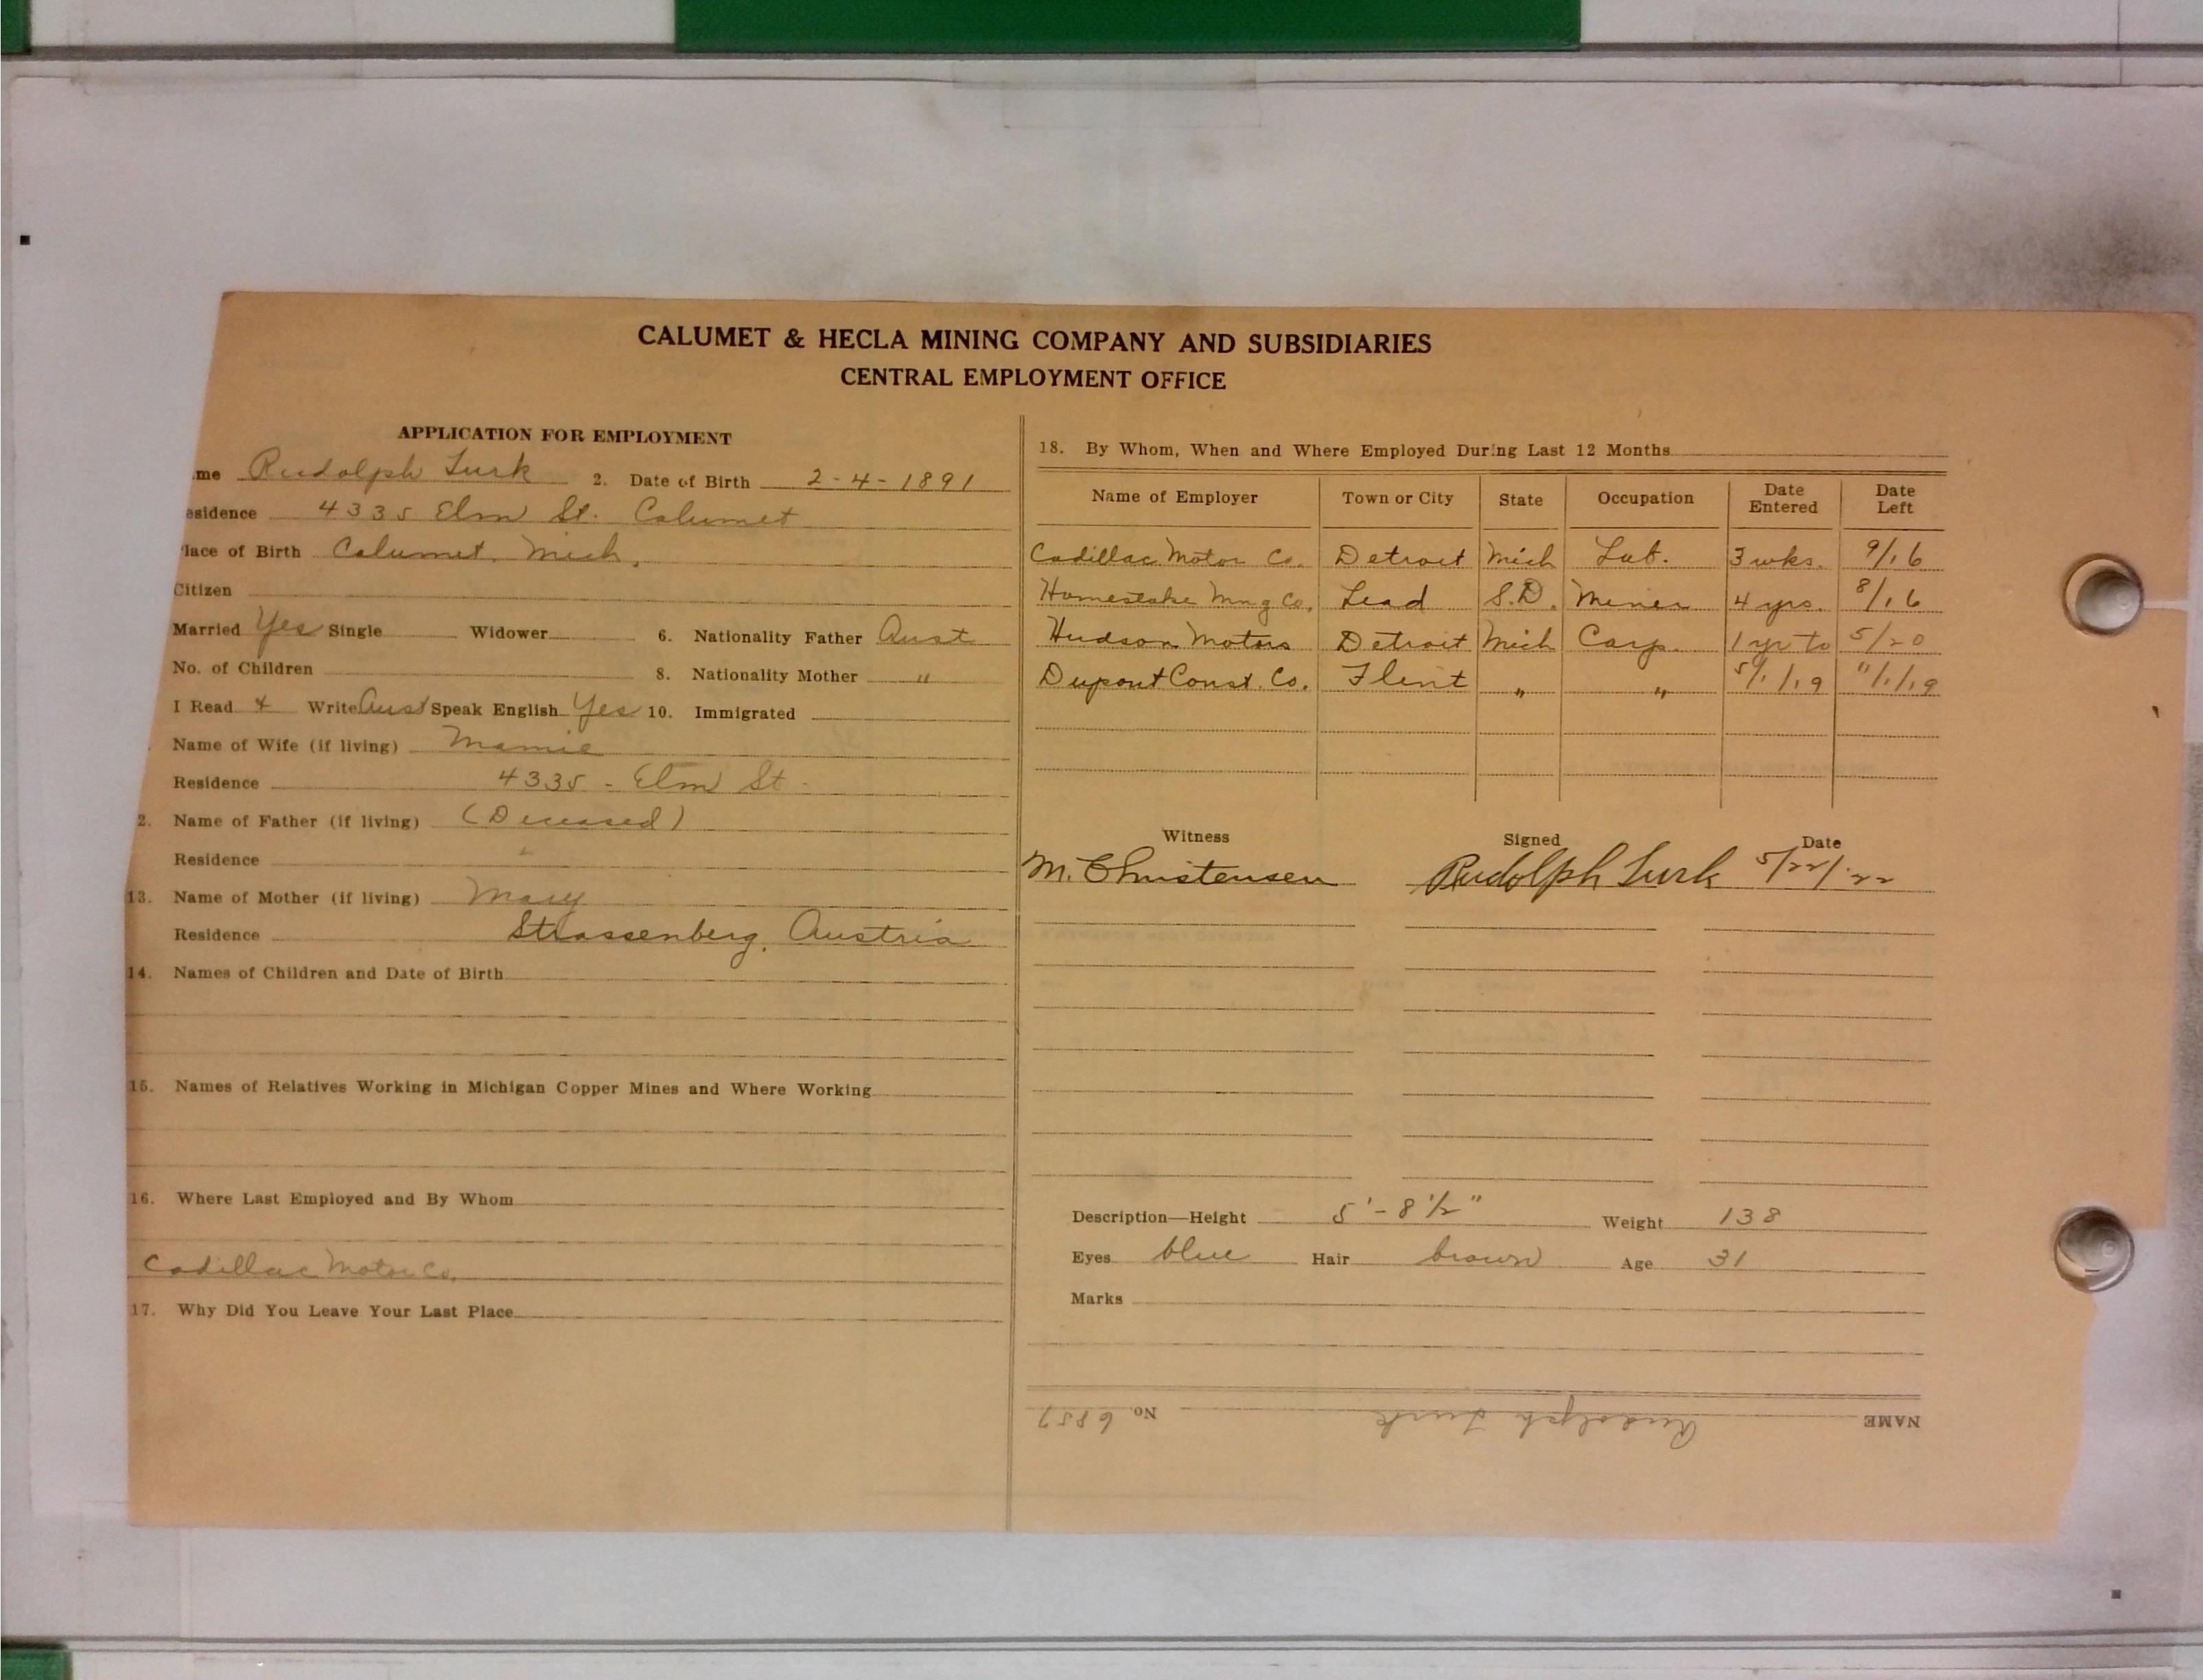 CALUMET & HECLA MINING COMPANY AND SUBSIDIARIES
CENTRAL EMPLOYMENT OFFICE
APPLICATION FOR EMPLOYMENT
me Rudolph Turk 2. Date of Birth 2-4-1891
esidence 4335 Elm St. Calumet
lace of Birth Calumet, Mich.
Citizen
Married Yes Single Widower 6. Nationality Father Aust
No. of Children 8. Nationality Mother "
I Read & Write Aust Speak English Yes 10. Immigrated
Name of Wife (if living) Mamie
Residence 4335 - Elm St.
2. Name of Father (if living) (Deceased)
Residence
13. Name of Mother (if living) Mary
Residence Strassenberg, Austria
14. Names of Children and Date of Birth
15. Names of Relatives Working in Michigan Copper Mines and Where Working
16. Where Last Employed and By Whom
Cadillac Motor Co.
17. Why Did You Leave Your Last Place
18. By Whom, When and Where Employed During Last 12 Months
Name of Employer Town or City State Occupation Date Entered Date Left
Cadillac Motor Co. Detroit Mich Lab. 3 wks. 9/16
Homestake Mng Co. Lead S.D. Miner 4 yrs. 8/16
Hudson Motors Detroit Mich Carp. 1 yr to 5/20
Dupont Const. Co. Flint " " 5/1/19 11/1/19
Witness Signed Date
M. Christensen Rudolph Turk 5/22/22
Description—Height 5'-8 1/2" Weight 138
Eyes blue Hair brown Age 31
Marks
NAME Rudolph Turk No. 6857